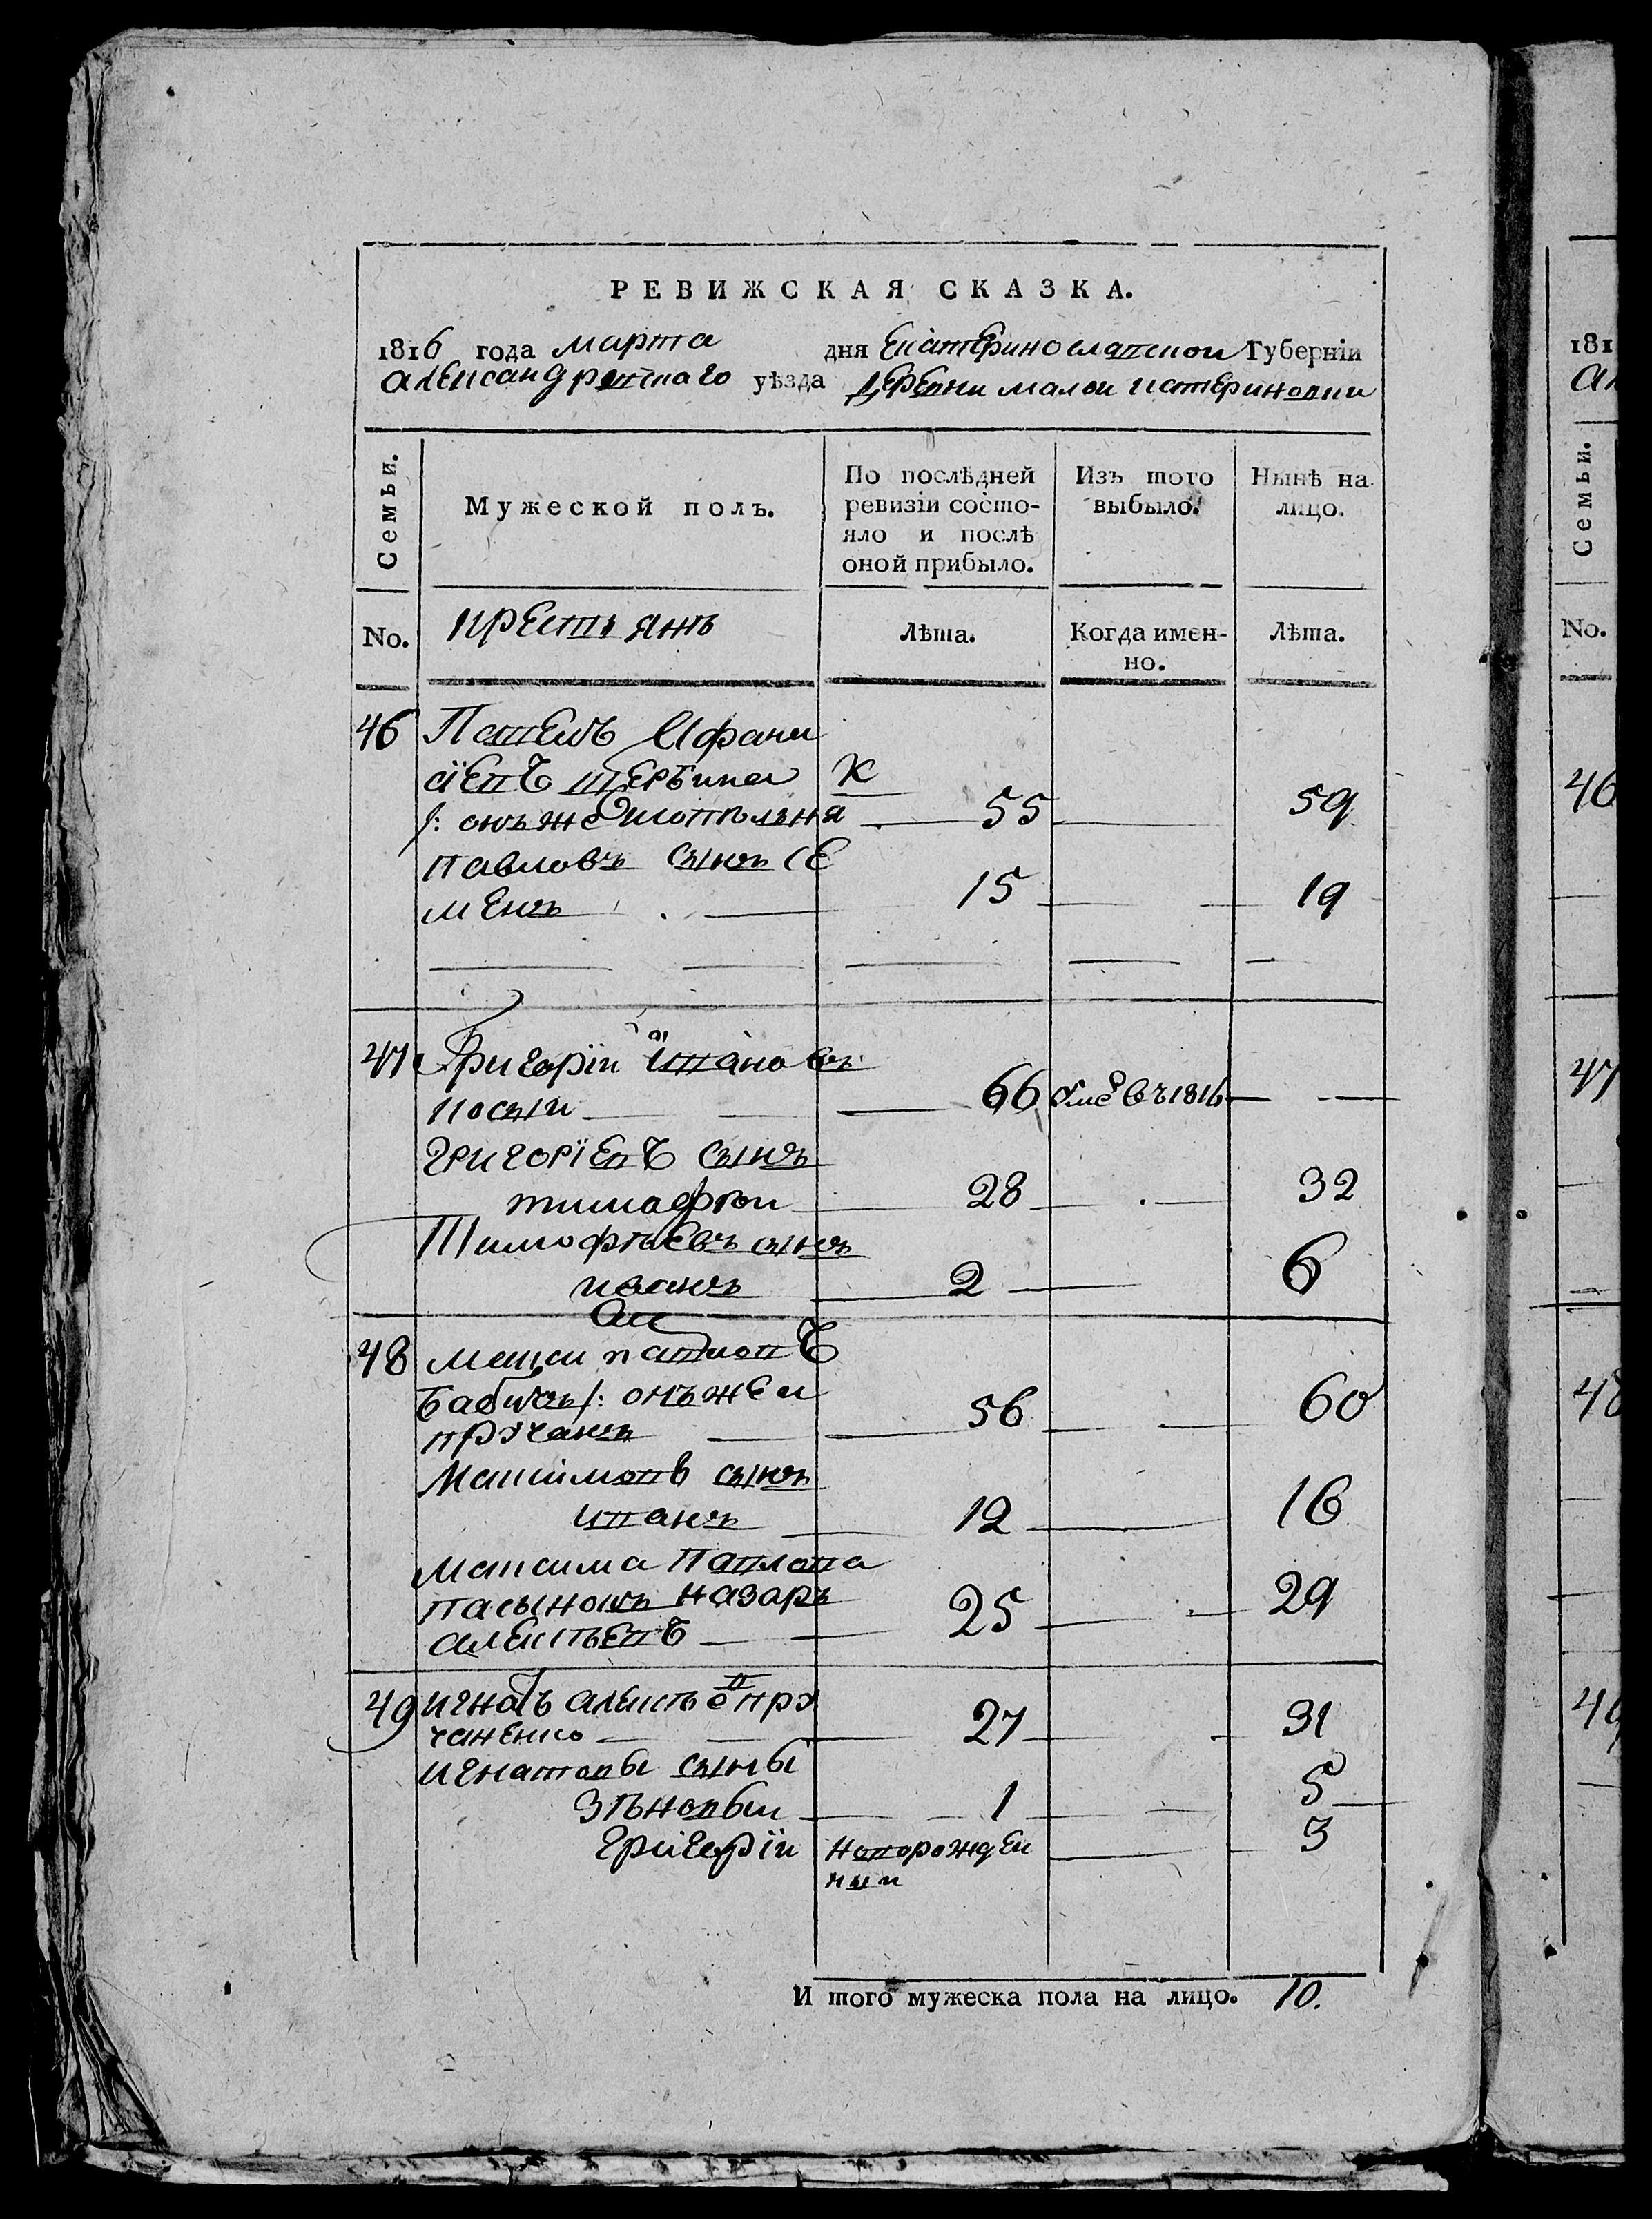 РЕВИЖСКАЯ СКАЗКА.
1816 года марта дня Екатеринославской Губерніи
Александровскаго уѣзда деревни малои катериновки
Семьи.
Мужеской полъ.
По послѣдней ревизіи состо-
яло и послѣ
оной прибыло.
Изъ того
выбыло.
Нынѣ на
лицо.
No.
крестьянъ
Лѣта.
Когда имен-
но.
Лѣта.
46 Павелъ Афана
сіевъ щербина К
/: онъже 55 59
павловъ сынъ се
менъ 15 19
47 Григоріи ивановъ
косыи 66 въ 1816
григоріевъ сынъ
тимофѣи 28 32
Тимофѣевъ сынъ
иванъ 2 6
48 Максим павловъ
бабичъ /: онъжеи
пручанъ 56 60
Максимовъ сынъ
иванъ 12 16
максима Павлова
пасынокъ назаръ
алексѣевъ 25 29
49 игнатъ алексѣев пру
чаненко 27 31
игнатовы сыны
зѣновыи 1 5
григоріи новорожден
ныи 3
И того мужеска пола на лицо. 10.
181
Ал
Семьи.
No.
46
47
48
49